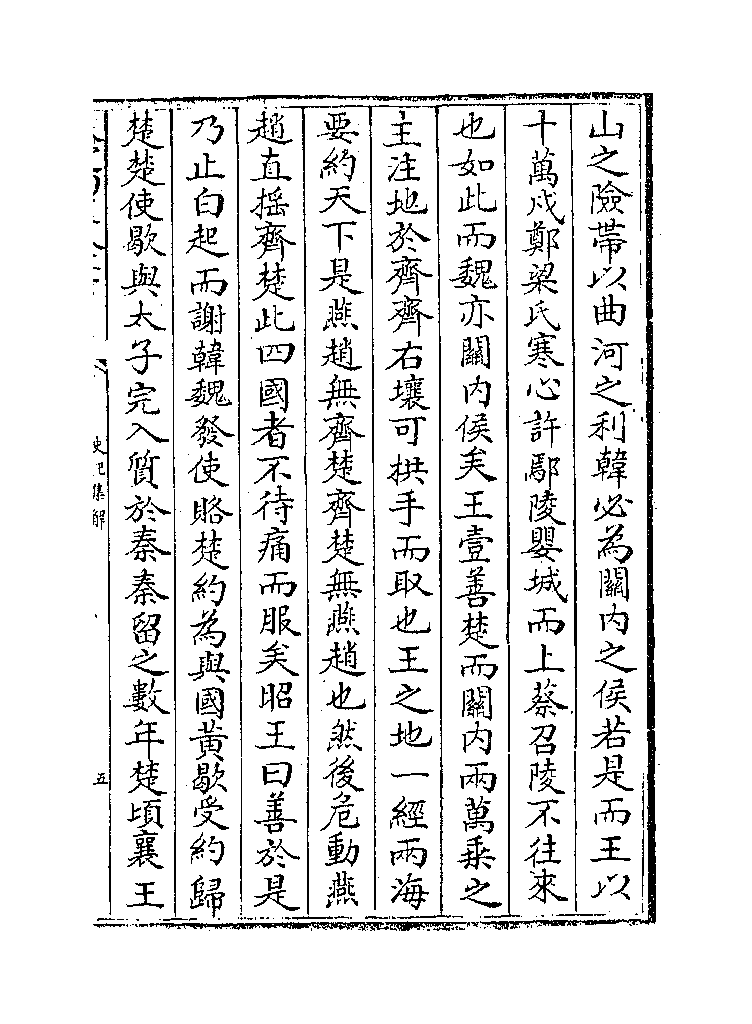 山之險帶以曲河之利韓必為關内之侯若是而王以
十萬戍鄭梁氏寒心許鄢陵嬰城而上蔡召陵不往來
也如此而魏亦關内侯矣王壹善楚而關内兩萬乘之
主注地於齊齊右壤可拱手而取也王之地一經兩海
要約天下是燕趙無齊楚齊楚無燕趙也然後危動燕
趙直揺齊楚此四國者不待痛而服矣昭王曰善於是
乃止白起而謝韓魏發使賂楚約為與國黄歇受約歸
楚楚使歇與太子完入質於秦秦留之數年楚頃襄王
史記集解
五